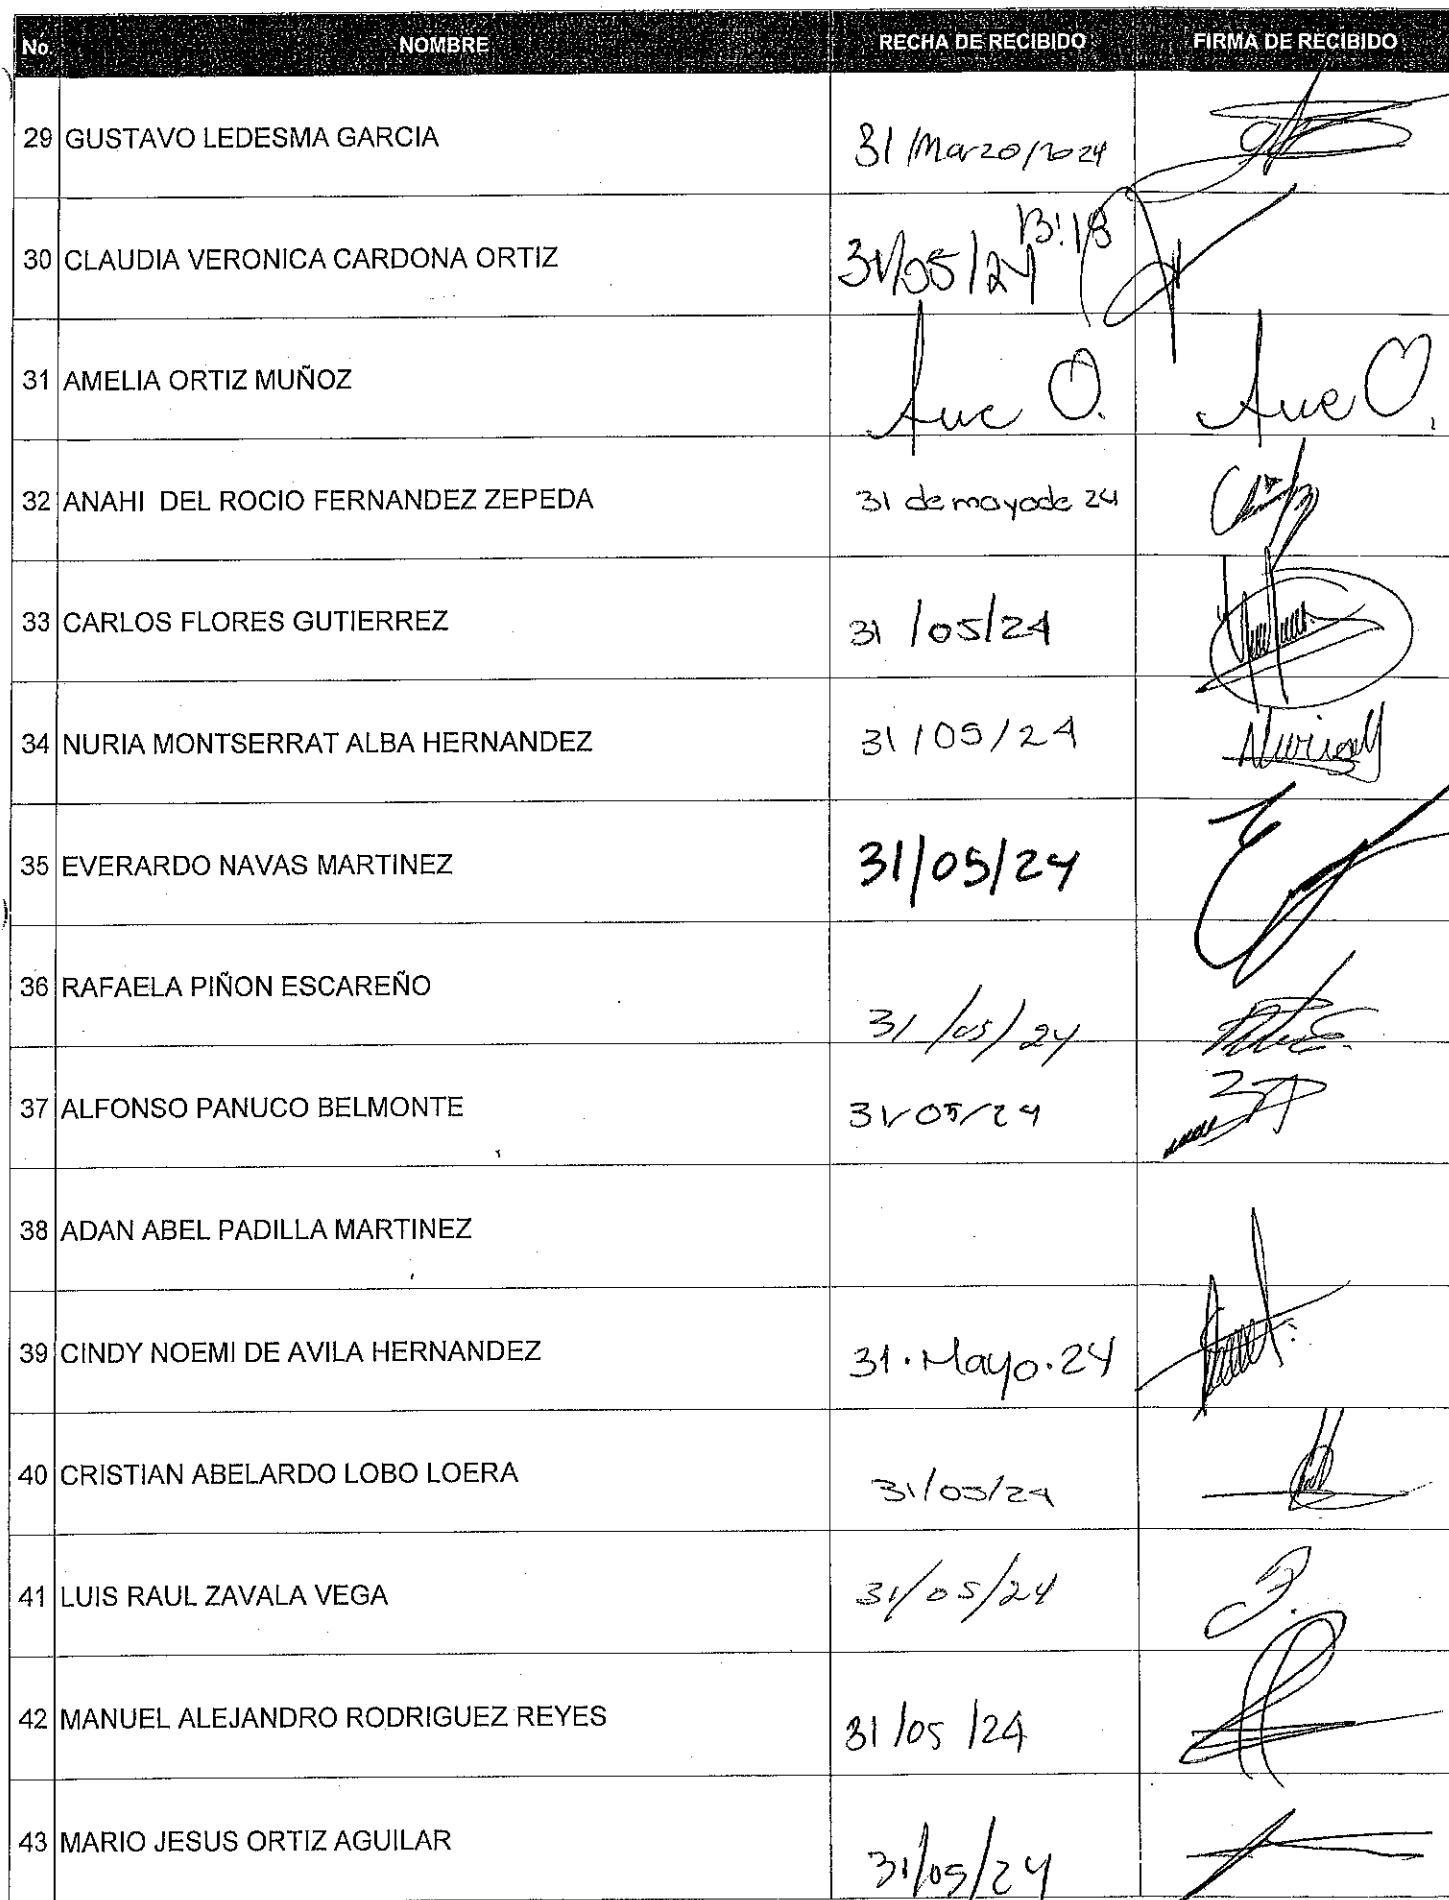 No. NOMBRE RECHA DE RECIBIDO FIRMA DE RECIBIDO
29 GUSTAVO LEDESMA GARCIA 31/Marzo/2024
30 CLAUDIA VERONICA CARDONA ORTIZ 31/05/24 13:18
31 AMELIA ORTIZ MUÑOZ
32 ANAHI DEL ROCIO FERNANDEZ ZEPEDA 31 de mayo de 24
33 CARLOS FLORES GUTIERREZ 31/05/24
34 NURIA MONTSERRAT ALBA HERNANDEZ 31/05/24
35 EVERARDO NAVAS MARTINEZ 31/05/24
36 RAFAELA PIÑON ESCAREÑO 31/05/24
37 ALFONSO PANUCO BELMONTE 31/05/24
38 ADAN ABEL PADILLA MARTINEZ
39 CINDY NOEMI DE AVILA HERNANDEZ 31.Mayo.24
40 CRISTIAN ABELARDO LOBO LOERA 31/05/24
41 LUIS RAUL ZAVALA VEGA 31/05/24
42 MANUEL ALEJANDRO RODRIGUEZ REYES 31/05/24
43 MARIO JESUS ORTIZ AGUILAR 31/05/24